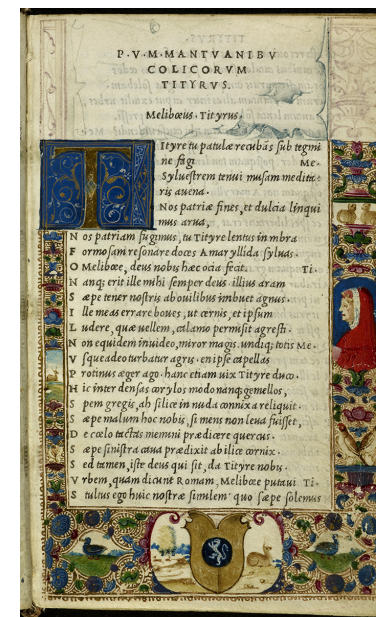 P. V. M. MANTVANI BV
COLICORVM
TITYRVS.
Melibœus. Tityrus.
TItyre tu patulæ recubãs sub tegmi
ne fagi Me.
Syluestrem tenui musam medita
ris auena.
Nos patriæ fines, et dulcia linqui
mus arua,
N os patriam fugimus, tu Tityre lentus in vmbra
F ormosam resonare doces Amaryllida syluas.
O Melibœe, deus nobis hæc ocia fecit. Ti.
N anq; erit ille mihi semper deus. illius aram
S æpe tener nostris ab ouilibus imbuet agnus.
I lle meas errare boues, ut cernis, et ipsum
L udere, quæ uellem, calamo permisit agresti.
N on equidem inuideo, miror magis. undiq; totis Me.
V sque adeo turbatur agris. en ipse capellas
P rotinus æger ago. hanc etiam uix Tityre duco.
H ic inter densas corylos modo nanq; gemellos,
S pem gregis, ah silice in nuda connixa reliquit.
S æpe malum hoc nobis, si mens non leua fuisset,
D e cœlo tactas memini prædicere quercus.
S æpe sinistra caua prædixit ab ilice cornix.
S ed tamen, iste deus qui sit, da Tityre nobis.
V rbem, quam dicunt Romam, Melibœe putaui Ti.
S tultus ego huic nostræ similem, quo sæpe solemus